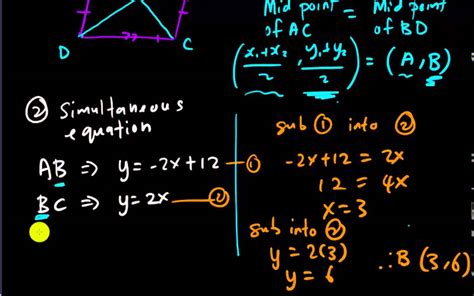 D
C
Mid point = Mid point
of AC of BD
(x₁+x₂/2, y₁+y₂/2) = (A, B)
② Simultaneous
equation
AB ⇒ y = -2x+12 — ①
BC ⇒ y = 2x — ②
sub ① into ②
-2x+12 = 2x
12 = 4x
x = 3
sub into ②
y = 2(3)
y = 6
∴ B (3,6)